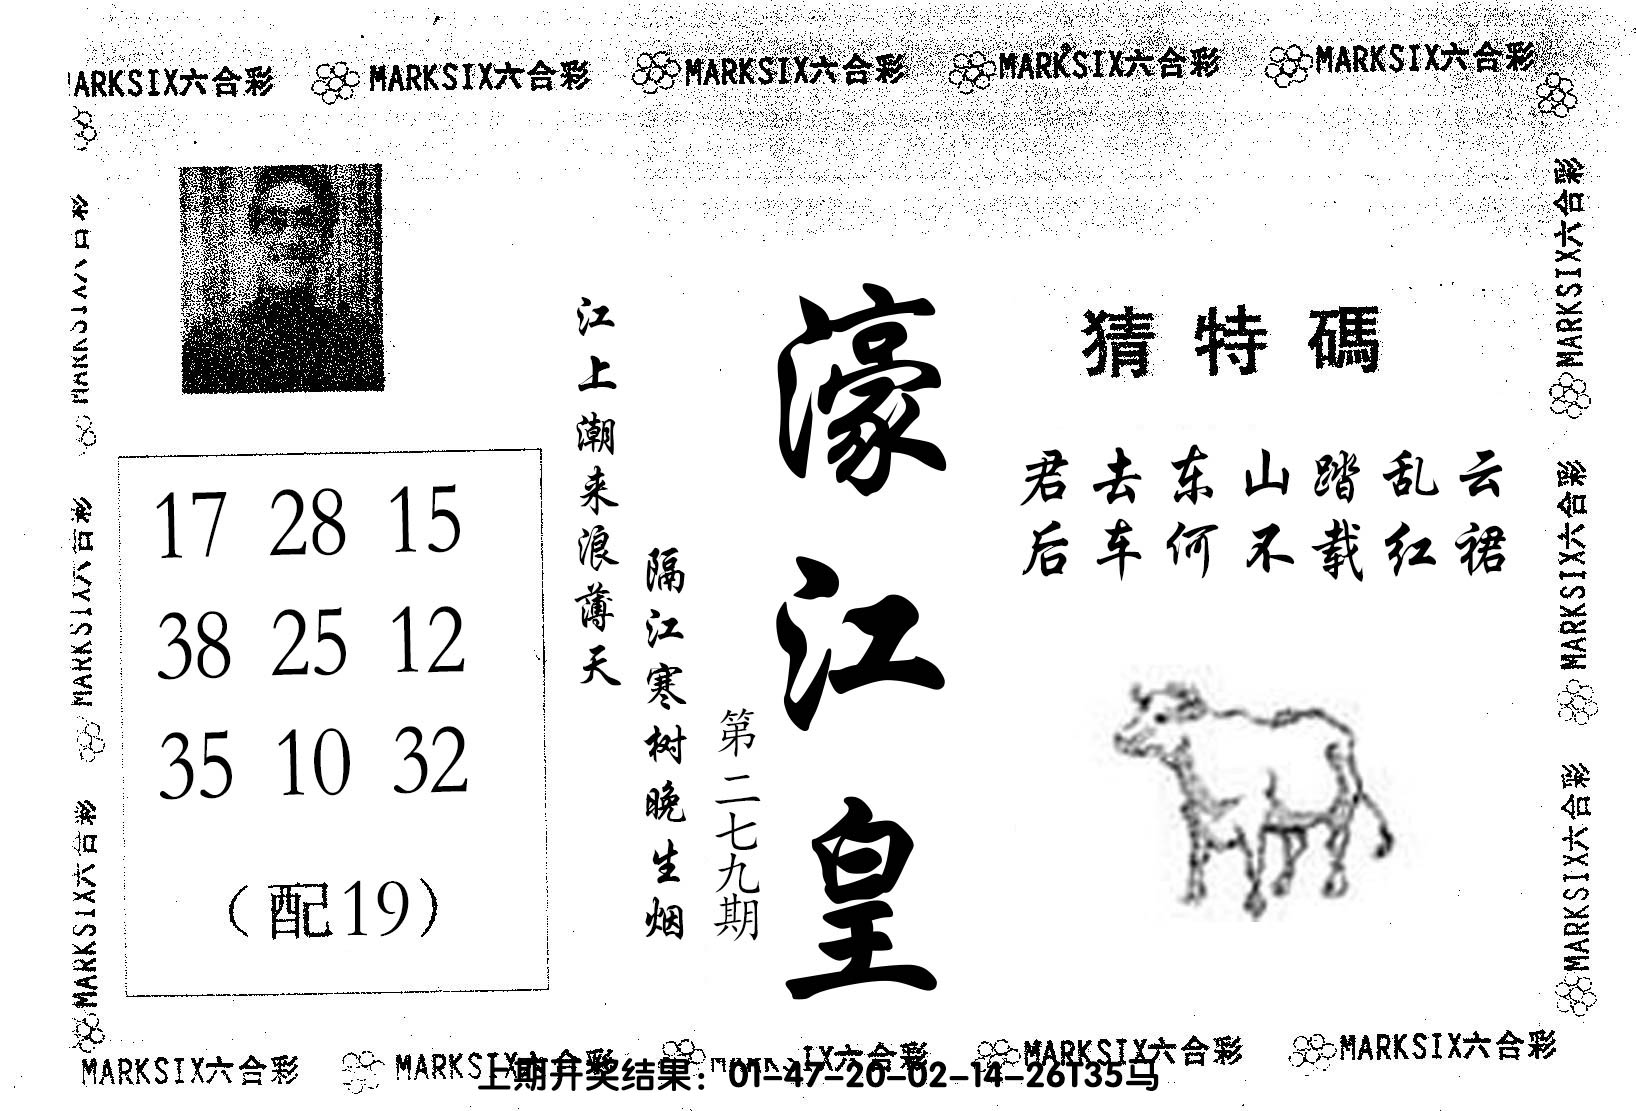 MARKSIX六合彩 MARKSIX六合彩 MARKSIX六合彩 MARKSIX六合彩 MARKSIX六合彩
猜特碼
君去东山踏乱云
后车何不载红裙
濠江皇
第二七九期
江上潮来浪薄天
隔江寒树晚生烟
17 28 15
38 25 12
35 10 32
(配19)
MARKSIX六合彩
MARKSIX六合彩
MARKSIX六合彩
MARKSIX六合彩
MARKSIX六合彩
MARKSIX六合彩
MARKSIX六合彩 MARKSIX六合彩 MARKSIX六合彩 MARKSIX六合彩 MARKSIX六合彩
上期开奖结果：01-47-20-02-14-26T35马